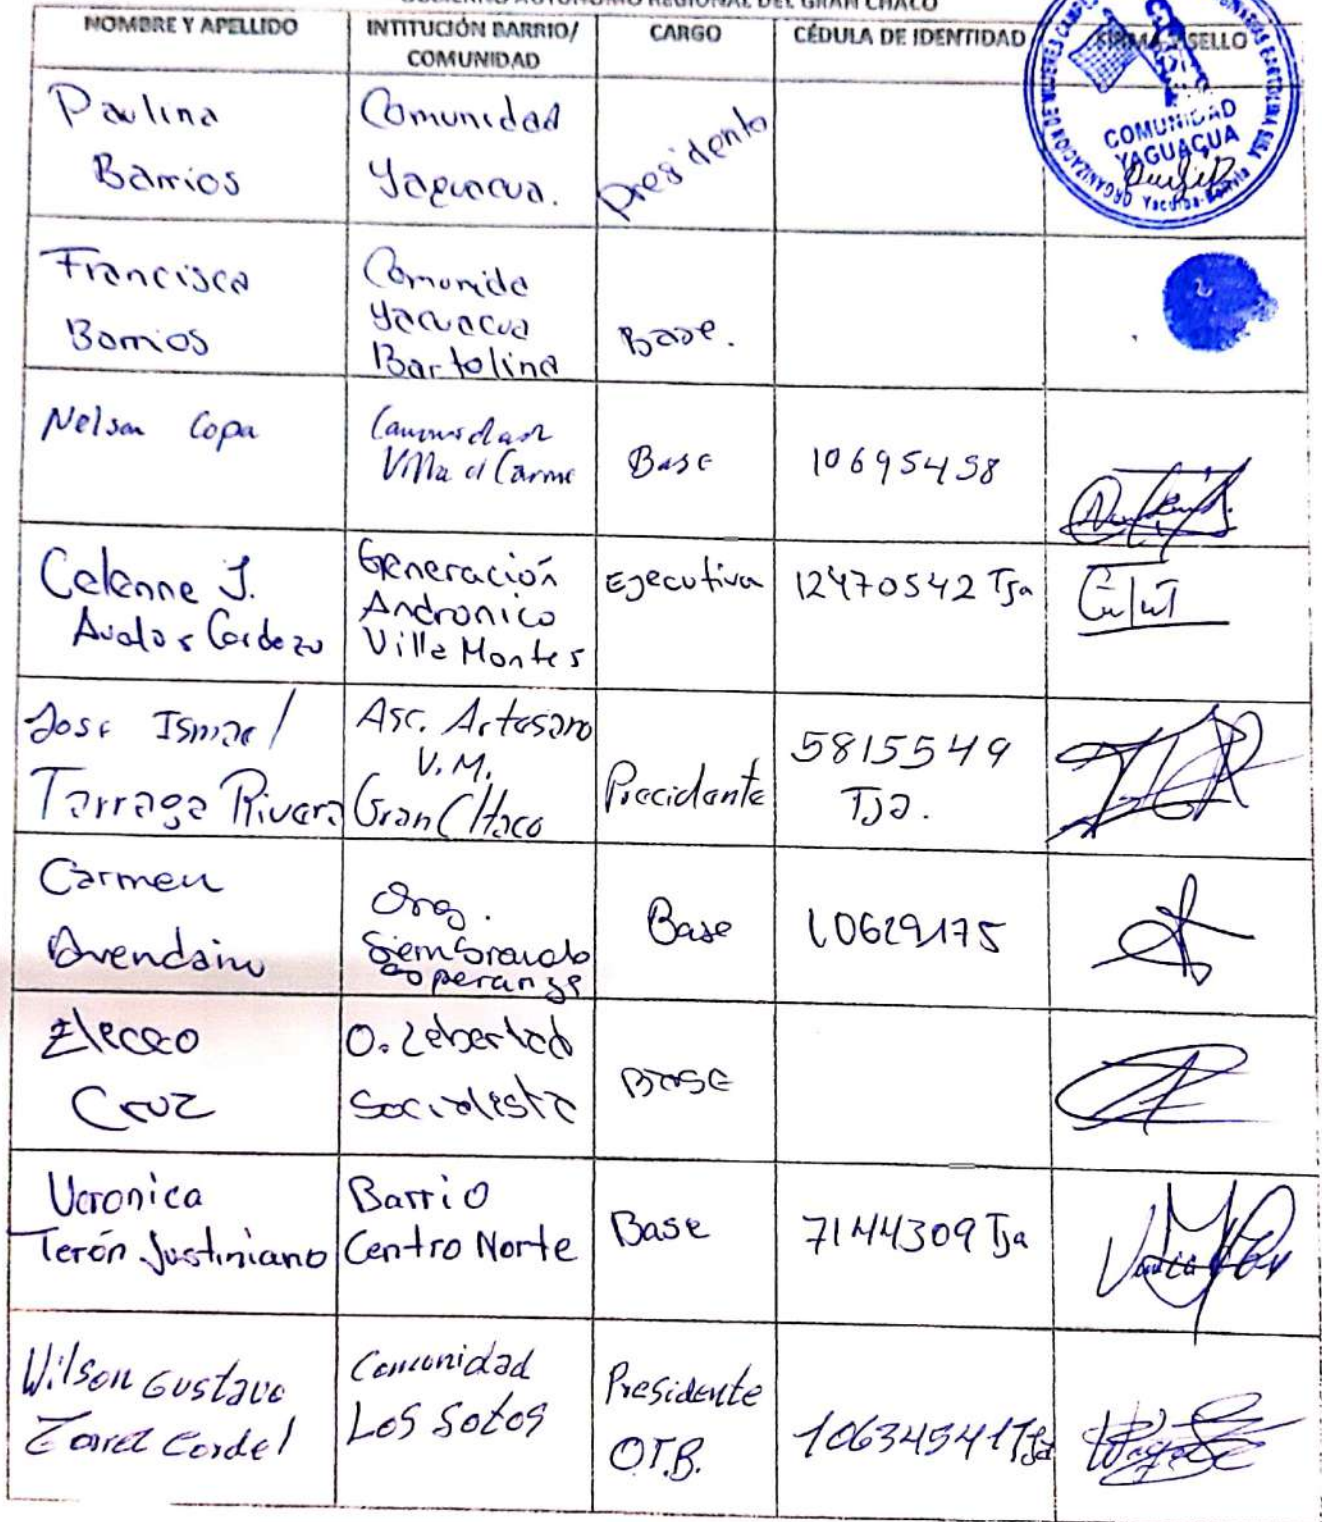 GOBIERNO AUTÓNOMO REGIONAL DEL GRAN CHACO
NOMBRE Y APELLIDO
INTITUCIÓN BARRIO/
COMUNIDAD
CARGO
CÉDULA DE IDENTIDAD
FIRMA Y SELLO
COMUNIDAD
YAGUACUA
Paulina
Barrios
Comunidad
Yaguacua.
Presidenta
Francisca
Barrios
Comunida
Yacuacua
Bartolina
Base.
Nelson Copa
Comunidad
Villa el Carme
Base
10695458
Celenne J.
Avalos Cardozo
Generación
Andronico
Villa Montes
Ejecutiva
12470542 Tja
Jose Ismael
Tarraga Rivera
Asc. Artesano
V.M.
Gran CHaco
Precidente
5815549
Tja.
Carmen
Avendaño
Org.
Sembrando
Esperanza
Base
10629175
Cruz
O. Lebertad
Socialista
BASE
Veronica
Terón Justiniano
Barrio
Centro Norte
Base
7144309 Tja
Wilson Gustavo
Comunidad
Los Sotos
Presidente
O.T.B.
10634541 Tja